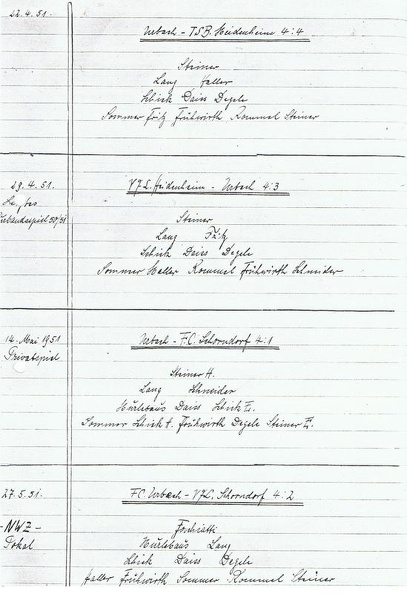 22.4.51. Urbach - T.S.B. Heidenheim 4:4
Steiner
Lang Haller
Schick Daiss Degele
Sommer Fritz Frühwirth Rommel Steiner
29.4.51. V.f.L. Heidenheim - Urbach 4:3
Steiner
Lang Fritz
Schick Daiss Degele
Sommer Haller Rommel Frühwirth Schneider
14. Mai 1951 Urbach - F.C. Schorndorf 4:1
Privatspiel
Steiner H.
Lang Schneider
Hurlebaus Daiss Schick II.
Sommer Schick I. Frühwirth Degele Steiner II.
27.5.51. FC Urbach - V.f.L. Schorndorf 4:2
- NWZ -
Pokal
Hurlebaus Lang
Schick Daiss Degele
Haller Frühwirth Sommer Rommel Steiner